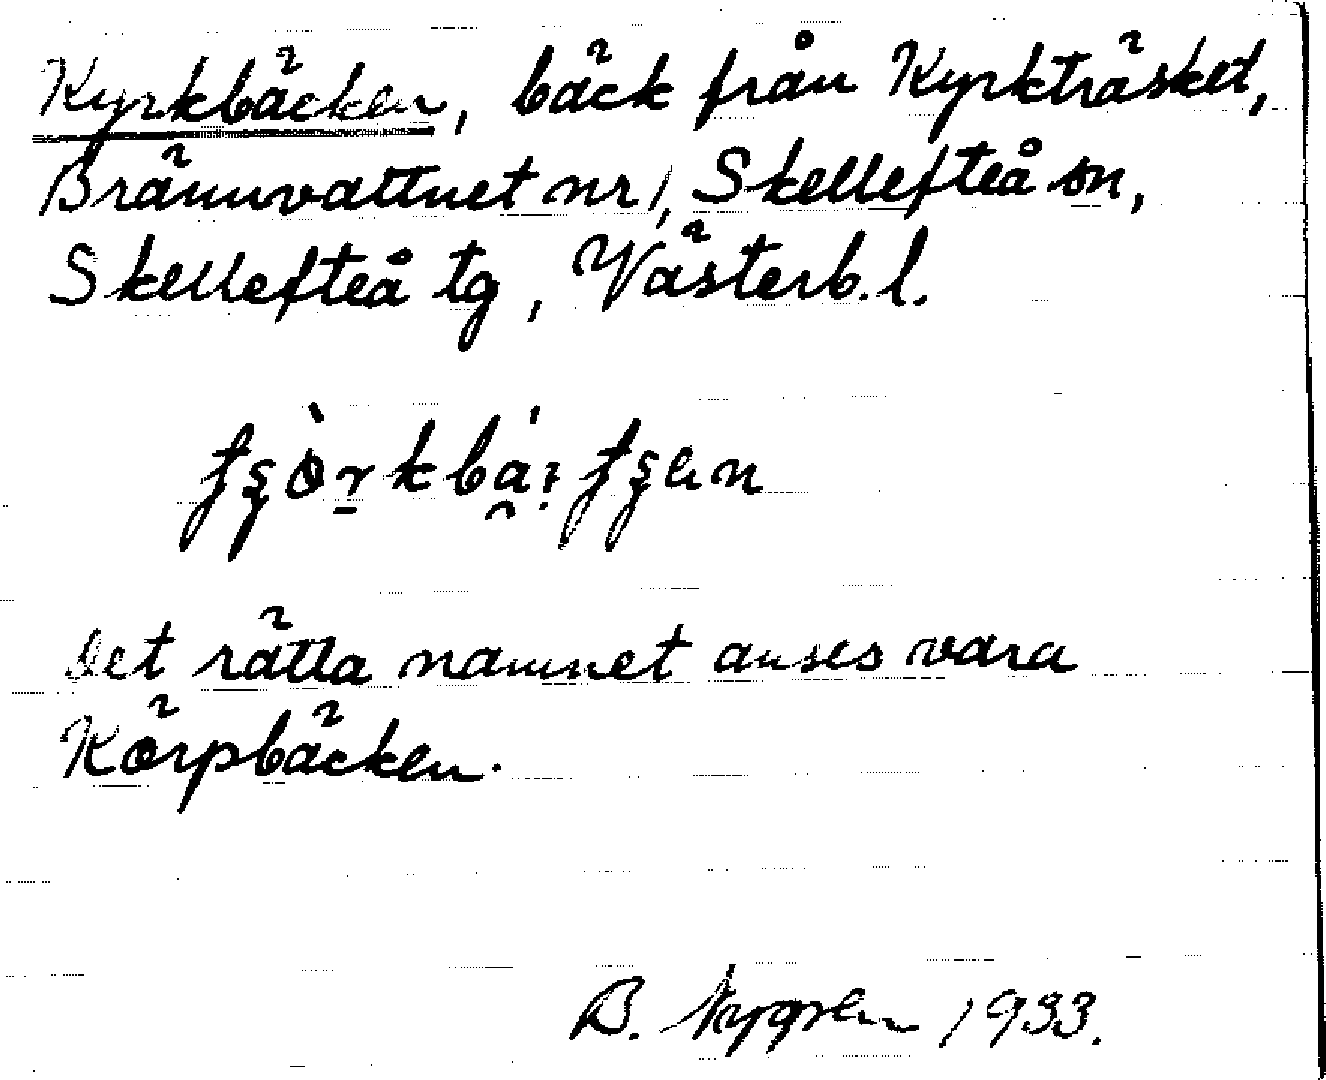 Kyrkbäcken, bäck från Kyrkträsket,
Brännvattnet nr 1, Skellefteå sn,
Skellefteå tg, Västerb. l.
Det rätta namnet anses vara
Körpbäcken.
B. Nygren 1933.